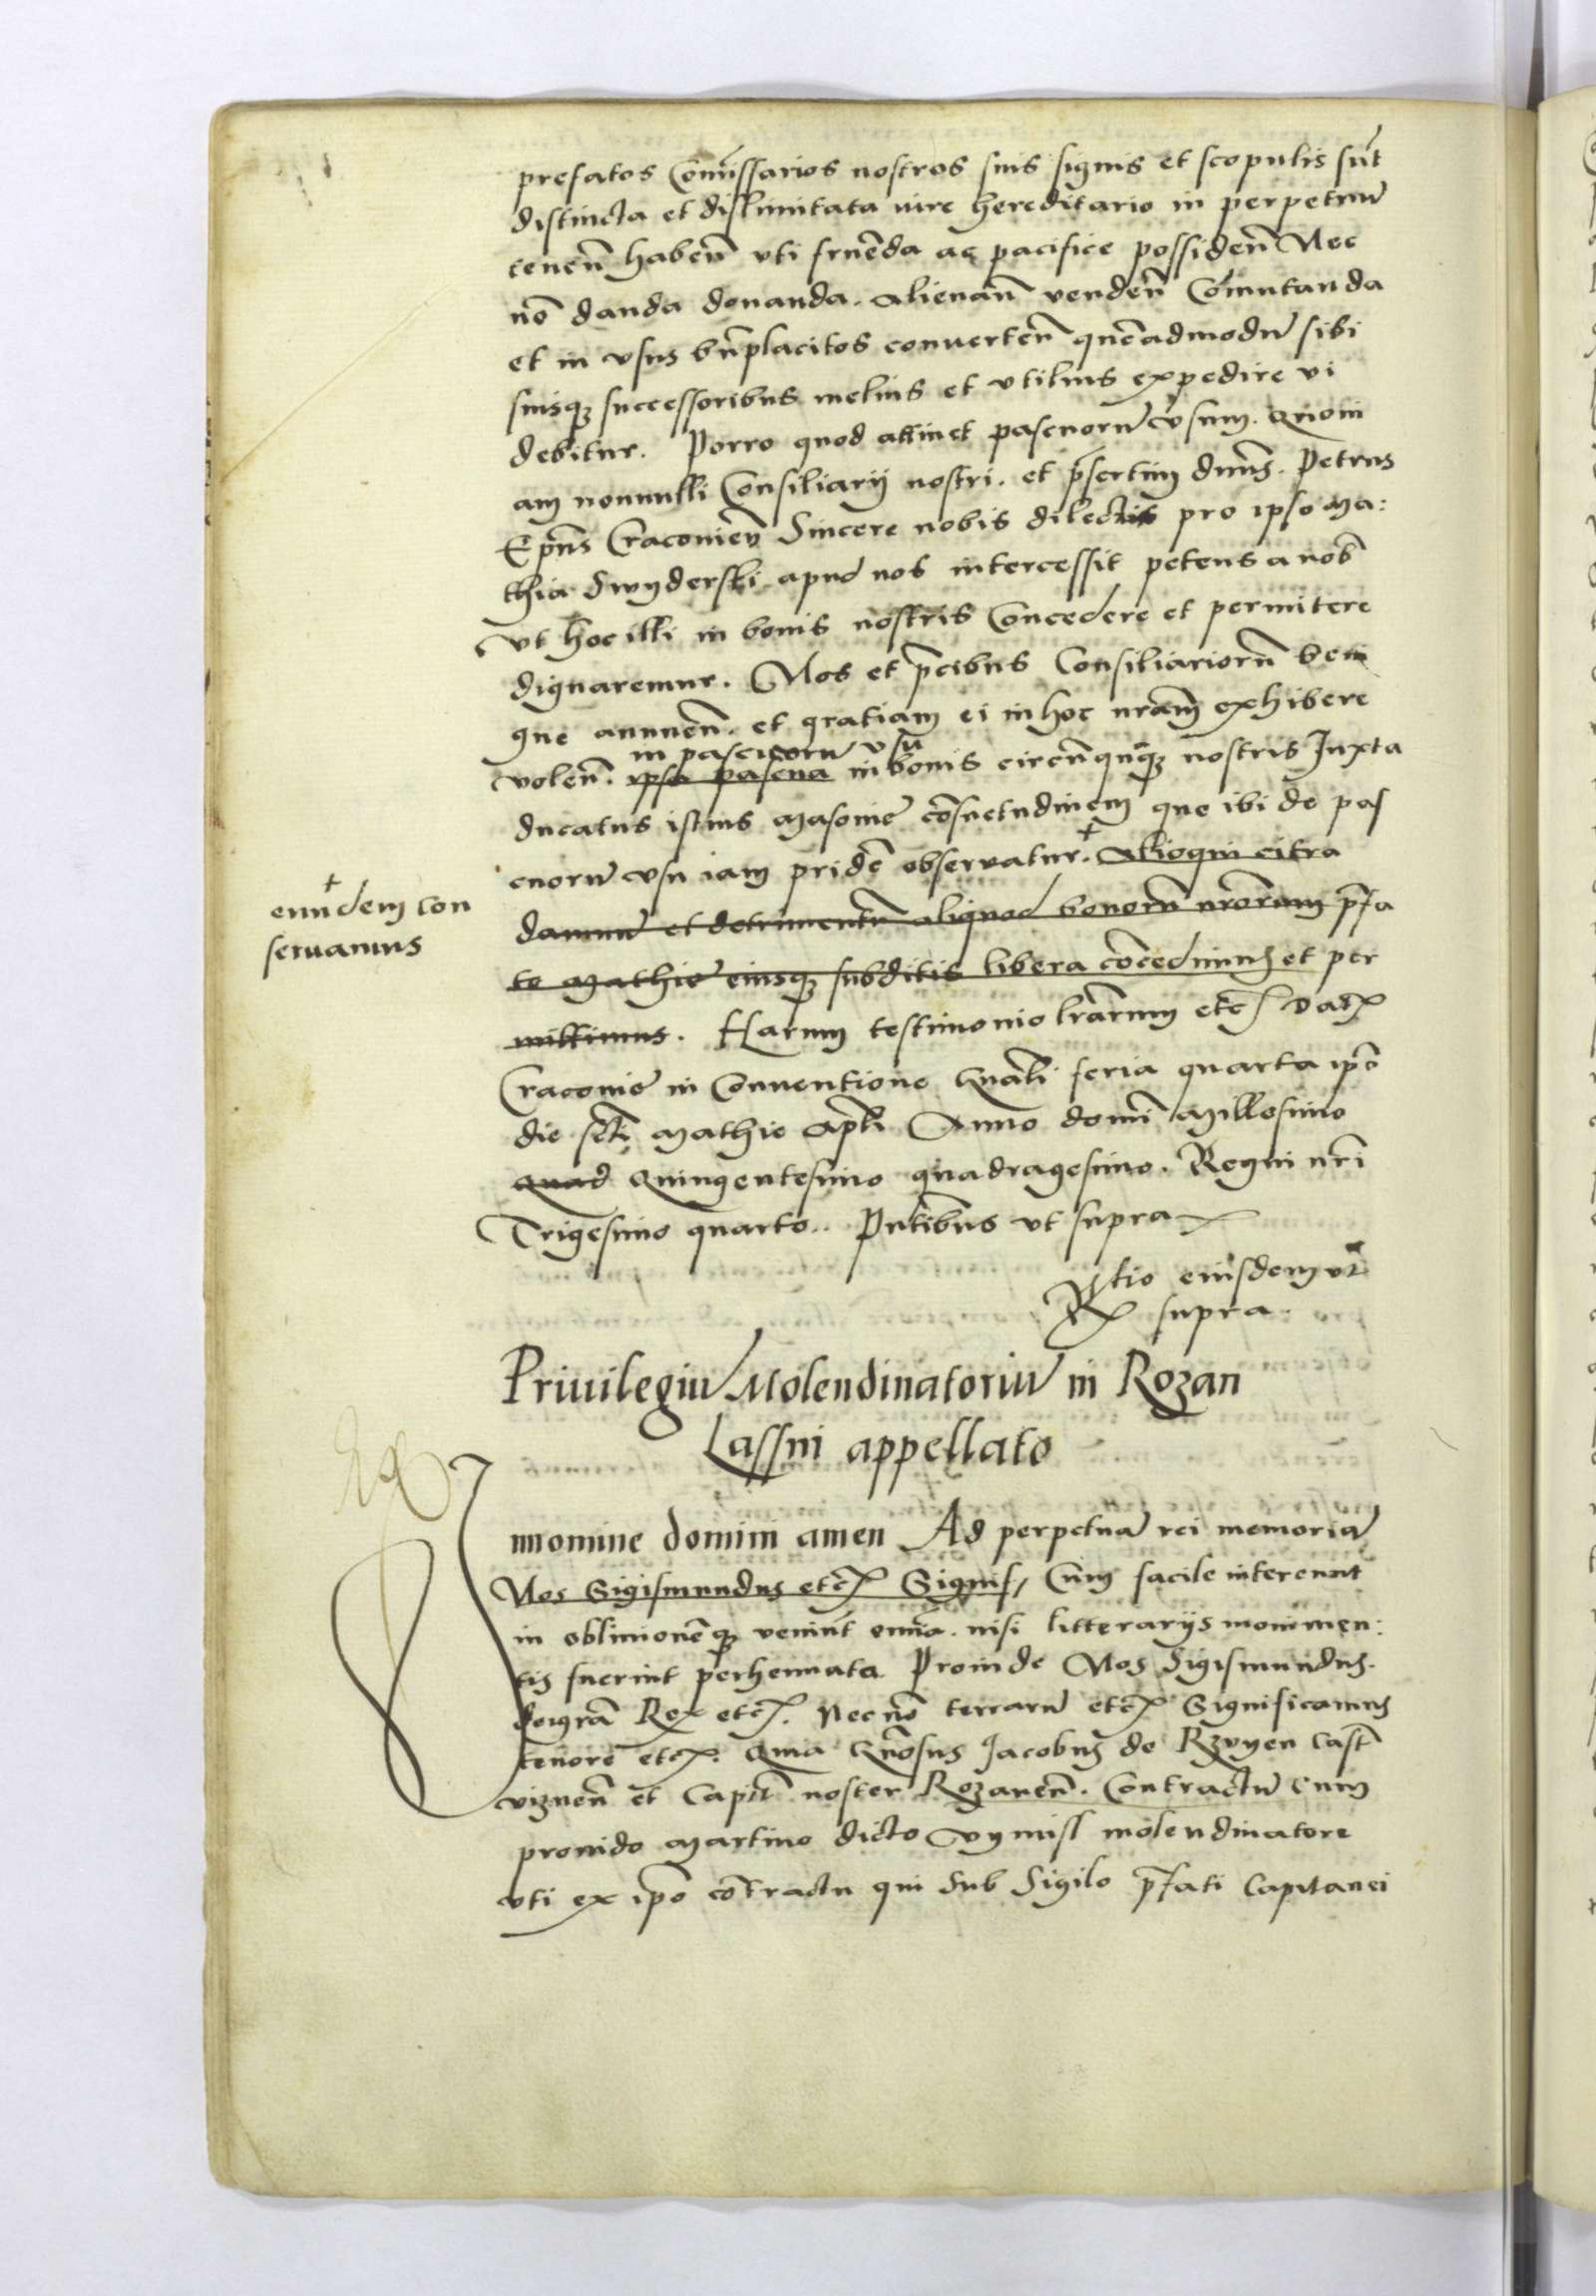 prefatos Com̃issarios nostros suis signis et scopulis sũt
distincta et dislimitata iure hereditario in perpetuũ
teneñ habeñ vti fruẽda ac pacifice possideñ Nec
nõ danda donanda. alienañ vendeñ Cõmutanda
et in vsus bñplacitos conuerteñ quẽadmodũ sibi
suisq; successoribus melius et vtilius expedire vi
debitur. Porro quod attinet pascuorũ vsum. Quoni
am nonnulli Consiliarij nostri. et p̃sertim dñus. Petrus
Ep̃us Cracouieñ Sincere nobis dilectus pro ipso Ma:
thia Swyderski apud nos intercessit petens a nob̃
vt hoc illi in bonis nostris Concedere et permitere
dignaremur. Nos et p̃cibus Consiliariorũ beni
gne annueñ. et gratiam ei in hoc nr̃am exhibere
in pascuorũ vsu
voleñ. ipsa pascua in bonis circũquaq; nostris Juxta
ducatus istius Masouie cõsuetudinem que ibi de pas
cuorũ vsu iam pridẽ obseruatur. + Alioqui citra
+ eundem con
seruamus
damnũ et detrimentũ aliquod bonorũ nr̃orum p̃fa
to Mathie eiusq; subditis libera cõcedimus et per
mittimus. Harum testimonio lr̃arum etc̃ Dat̃
Cracouie in Conuentione Gñali feria quarta ip̃o
die sc̃ti Mathie ap̃li Anno domĩ Millesimo
Quad Quingentesimo quadragesimo. Regni nr̃i
Trigesimo quarto.. Pñtibus vt supra
R̃tio eiusdem vt
supra.
Priuilegiũ Molendinatoriũ in Rozan
Lassni appellato
In nomine domini amen Ad perpetuã rei memoriã
Nos Sigismundus etc̃ Signif, Cum facile intereunt
in obliuionẽq; veniũt om̃ia. nisi litterarijs monimen:
tis fuerint perhennata. Proinde Nos Sigismundus.
dei gr̃a Rex etc̃. Necnõ terrarũ etc̃ Significamus
tenore etc̃. Quia Gñosus Jacobus de Rzvyen Cast̃
vizneñ et Capit̃ noster Rozaneñ. Contractũ cum
prouido Martino dicto vymisl molendinatore
vti ex ip̃o cõtractu qui Sub Sigilo p̃fati Capitanei